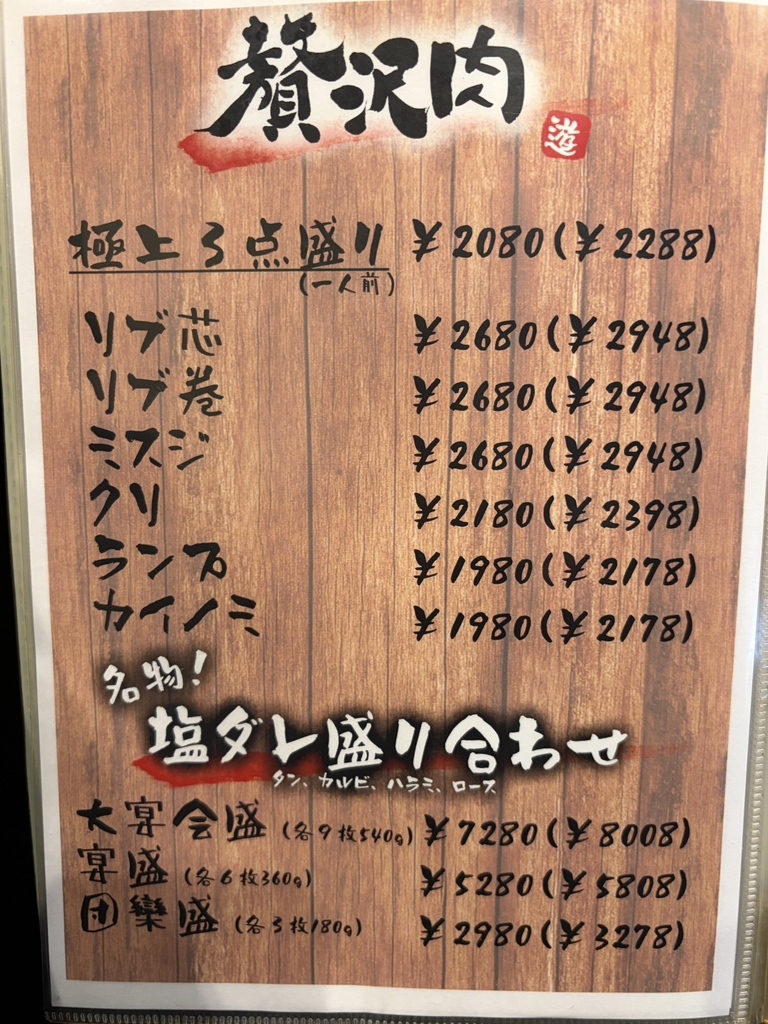 贅沢肉
遊
極上3点盛り ¥2080(¥2288)
(一人前)
リブ芯 ¥2680(¥2948)
リブ巻 ¥2680(¥2948)
ミスジ ¥2680(¥2948)
クリ ¥2180(¥2398)
ランプ ¥1980(¥2178)
カイノミ ¥1980(¥2178)
名物!
塩ダレ盛り合わせ
タン、カルビ、ハラミ、ロース
大宴会盛(各9枚540g) ¥7280(¥8008)
宴盛(各6枚360g) ¥5280(¥5808)
団欒盛(各3枚180g) ¥2980(¥3278)